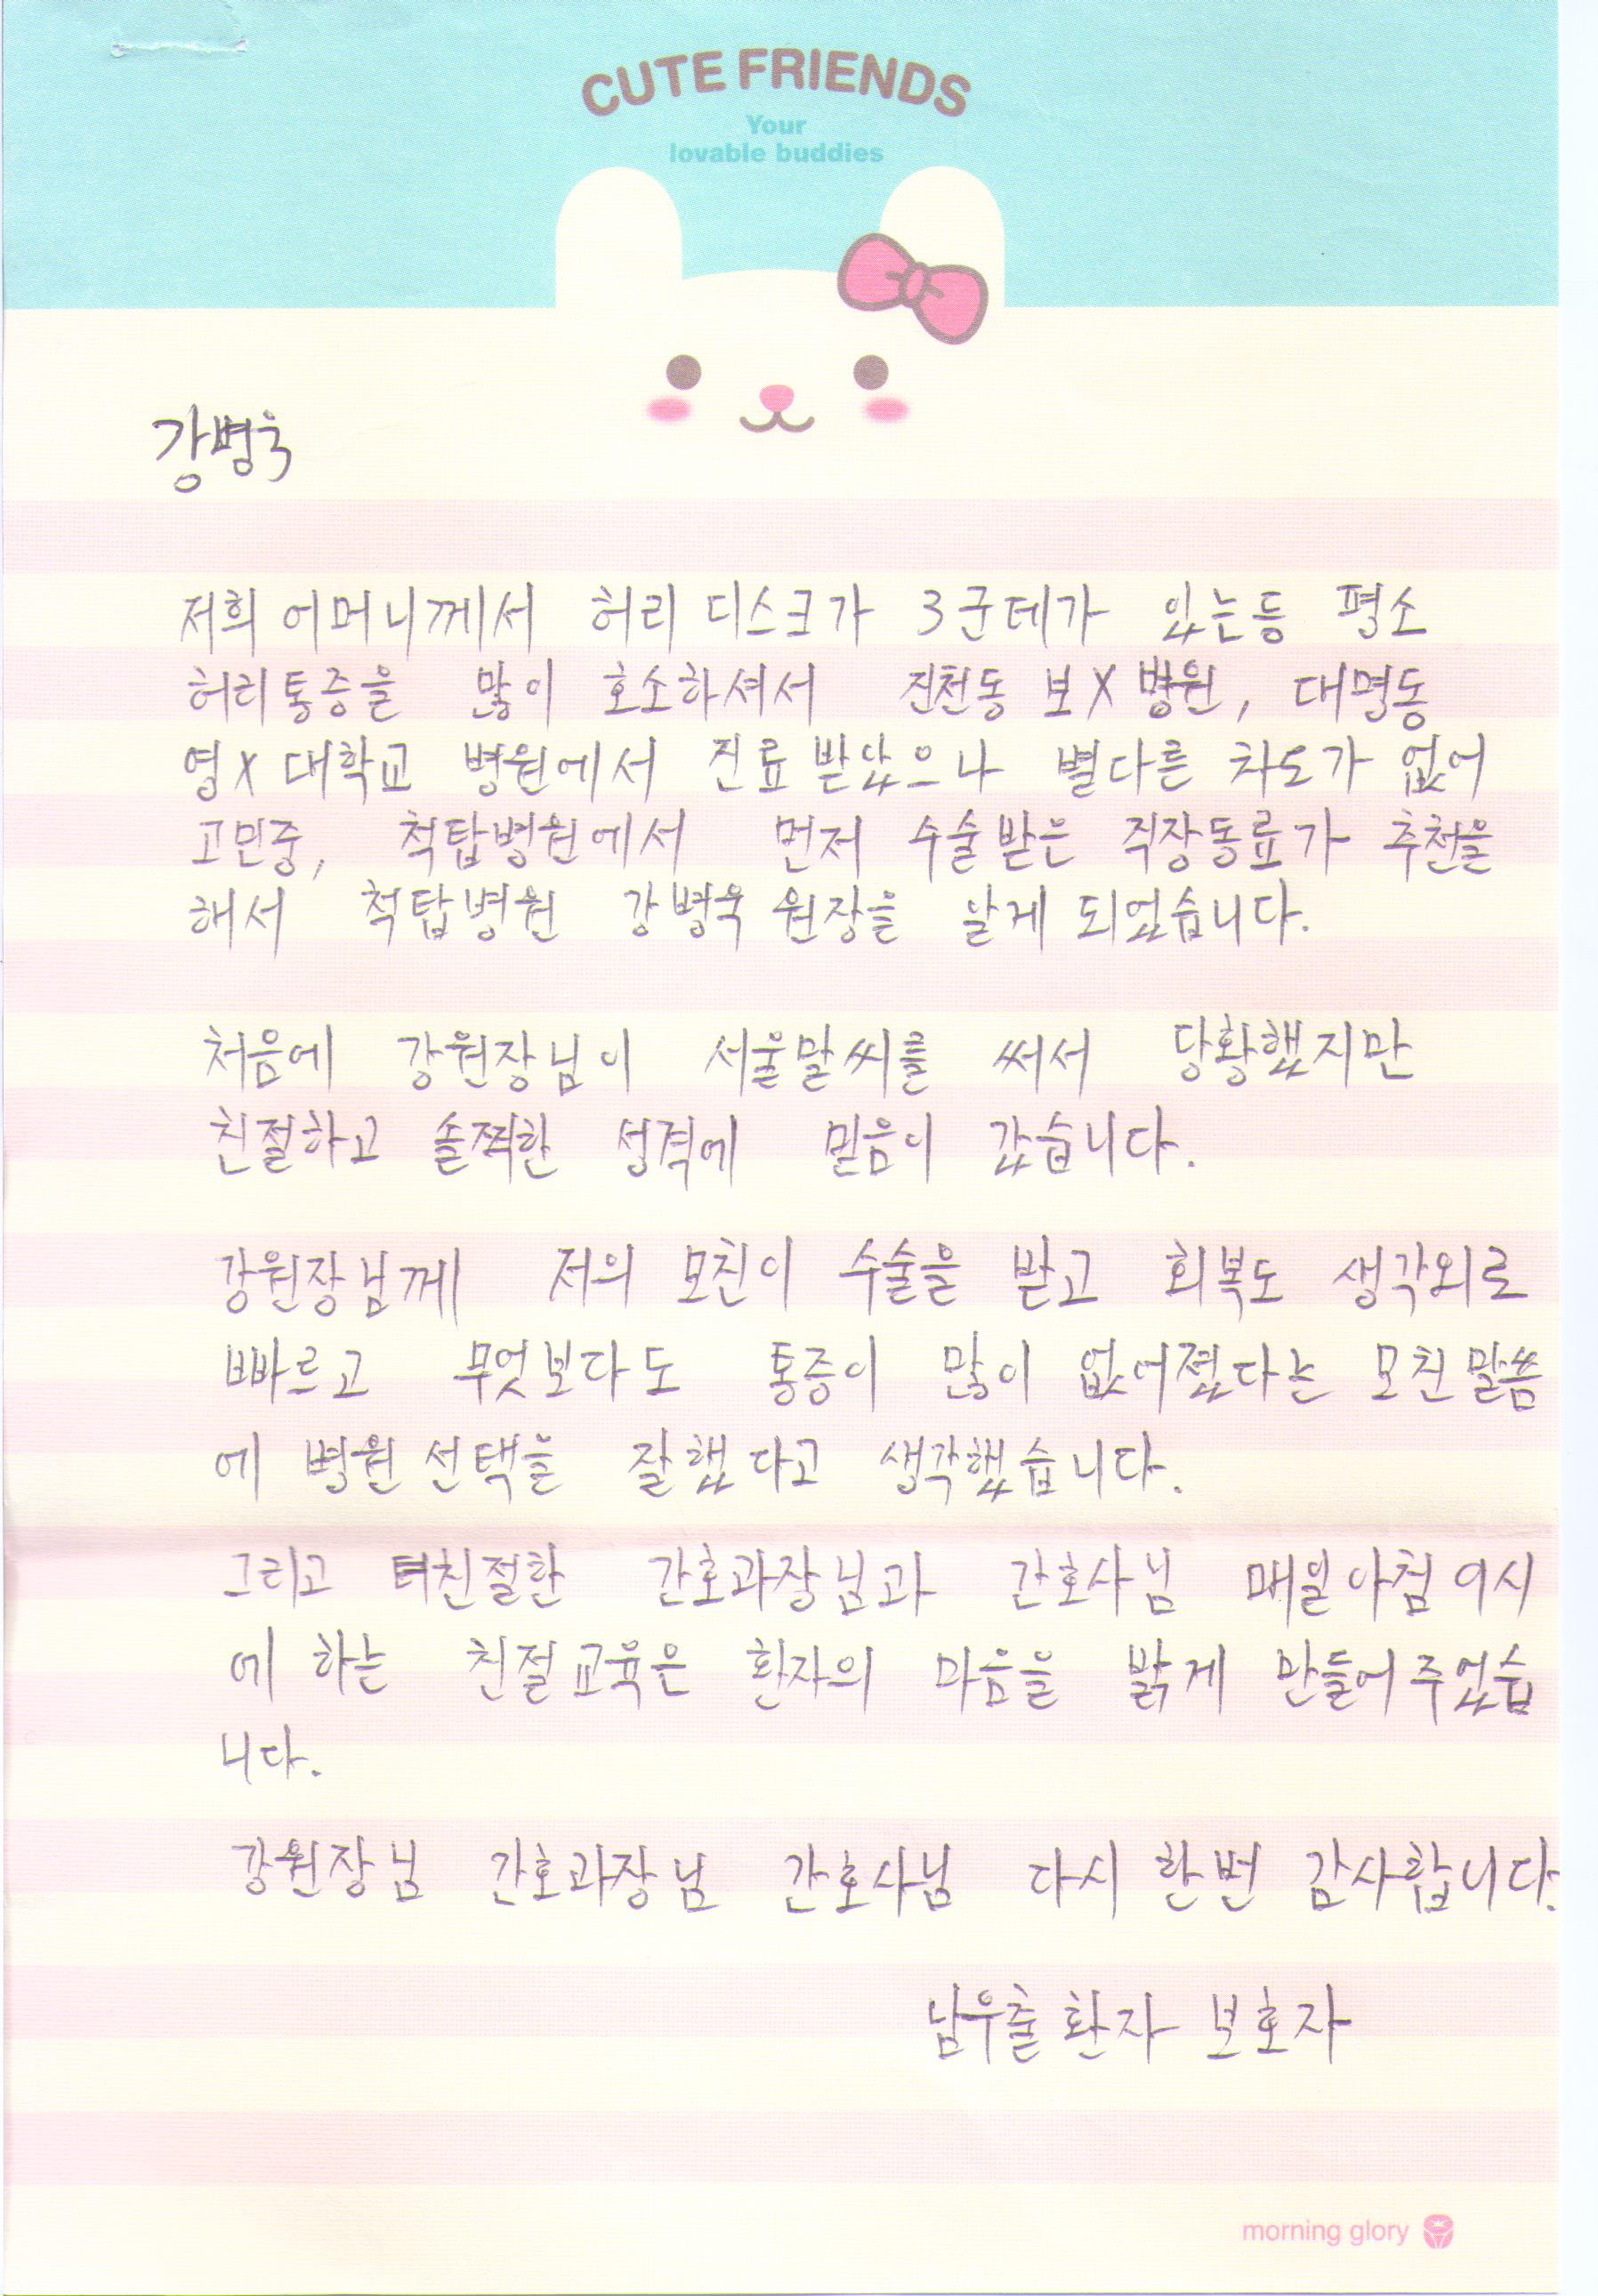 CUTE FRIENDS
Your
lovable buddies
강병욱
저희 어머니께서 허리 디스크가 3군데가 있는등 평소
허리통증을 많이 호소하셔서 진천동 보X병원, 대명동
영X대학교 병원에서 진료받았으나 별다른 차도가 없어
고민중, 척탑병원에서 먼저 수술받은 직장동료가 추천을
해서 척탑병원 강병욱 원장을 알게 되었습니다.
처음에 강원장님이 서울말씨를 써서 당황했지만
친절하고 솔찍한 성격에 믿음이 갔습니다.
강원장님께 저의 모친이 수술을 받고 회복도 생각외로
빠르고 무엇보다도 통증이 많이 없어졌다는 모친말씀
에 병원 선택을 잘했다고 생각했습니다.
그리고 친절한 간호과장님과 간호사님 매일아침 9시
에 하는 친절교육은 환자의 마음을 밝게 만들어주었습
니다.
강원장님 간호과장님 간호사님 다시 한번 감사합니다.
남우출 환자 보호자
morning glory